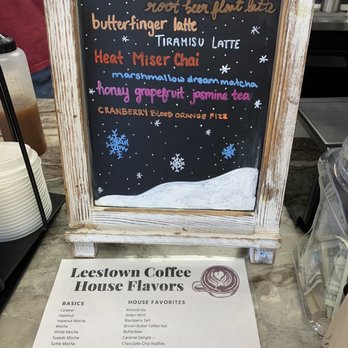 root beer float latte
butterfinger latte
TIRAMISU LATTE
Heat Miser Chai
marshmallow dream matcha
honey grapefruit jasmine tea
CRANBERRY BLOOD ORANGE FIZZ
Leestown Coffee
House Flavors
BASICS
Caramel
Hazelnut
Hazelnut Mocha
Mocha
White Mocha
Tuxedo Mocha
Turtle Mocha
HOUSE FAVORITES
Almond Joy
Andy's Mint
Blackberry Tart
Brown Butter Toffee Nut
Butterbeer
Caramel Delight
Chocolate Chip Waffles